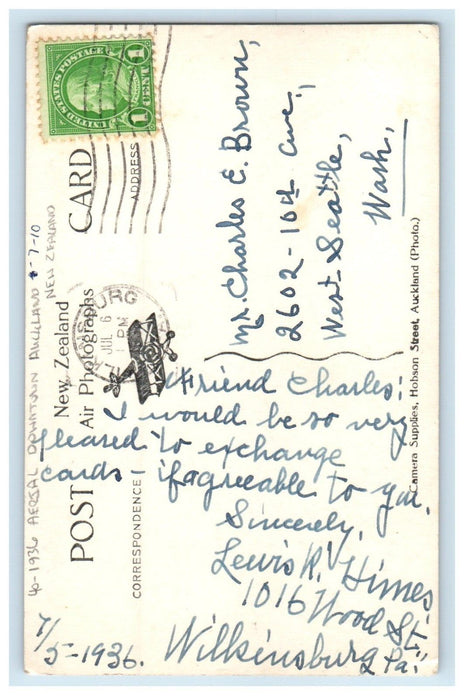 UNITED STATES POSTAGE
1 CENT 1
POST CARD
New Zealand
Air Photographs
CORRESPONDENCE
ADDRESS
40-1936 AERIAL DOWNTOWN AUCKLAND
7-10
NEW ZEALAND
JUL 6
1 PM
Mr. Charles E. Brown,
2602-10th Ave.,
West Seattle,
Wash.
Camera Supplies, Hobson Street, Auckland (Photo.)
Friend Charles:
I would be so very
pleased to exchange
cards - if agreeable to you.
Sincerely,
Lewis R. Himes
1016 Wood St.
Wilkinsburg
Pa.
7/5-1936.